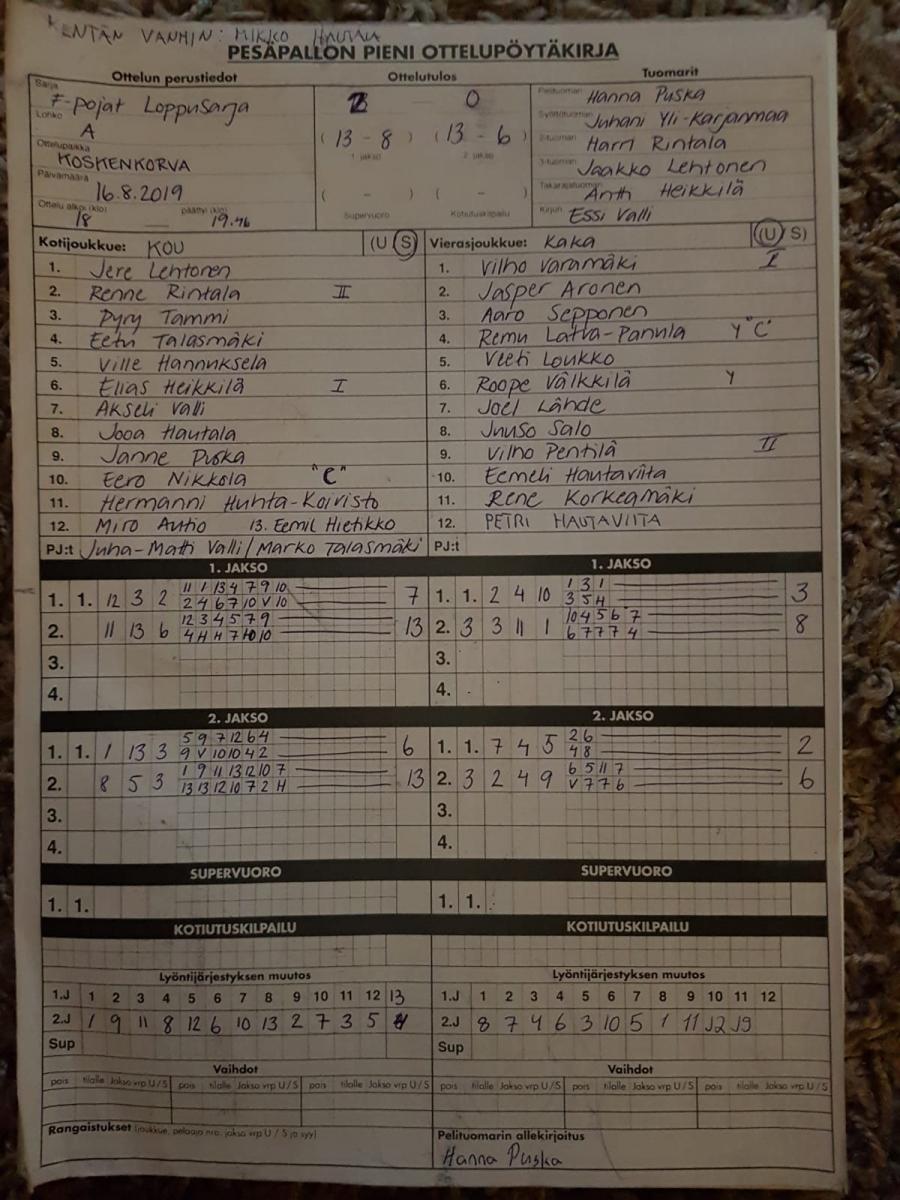 KENTÄN VANHIN: MIKKO HAUTALA
PESÄPALLON PIENI OTTELUPÖYTÄKIRJA
Ottelun perustiedot Ottelutulos Tuomarit
Sarja F-pojat Loppusarja
Lohko A
Ottelupaikka KOSKENKORVA
Päivämäärä 16.8.2019
Ottelu alkoi (klo) 18 päättyi (klo) 19.46
2 0
(13 - 8) (13 - 6)
1. jakso 2. jakso
( - ) ( - )
Supervuoro Kotiutuskilpailu
Pelituomari Hanna Puska
Syöttötuomari Juhani Yli-Karjanmaa
2-tuomari Harri Rintala
3-tuomari Jaakko Lehtonen
Takarajatuomari Antti Heikkilä
Kirjuri Essi Valli
Kotijoukkue: KOU (U S)
1. Jere Lehtonen
2. Renne Rintala II
3. Pyry Tammi
4. Eetu Talasmäki
5. Ville Hannuksela
6. Elias Heikkilä I
7. Akseli Valli
8. Jooa Hautala
9. Janne Puska
10. Eero Nikkola "C"
11. Hermanni Huhta-Koivisto
12. Miro Autio 13. Eemil Hietikko
PJ:t Juha-Matti Valli/Marko Talasmäki
Vierasjoukkue: KaKa (U S)
1. Vilho Varamäki I
2. Jasper Aronen
3. Aaro Sepponen
4. Remu Latva-Pannula Y "C"
5. Veeti Loukko
6. Roope Välkkilä Y
7. Joel Lähde
8. Juuso Salo
9. Vilho Pentilä II
10. Eemeli Hautaviita
11. Rene Korkeamäki
12. PETRI HAUTAVIITA
PJ:t
1. JAKSO
1. 1. 12 3 2 11 1 13 4 7 9 10 7
2 4 6 7 10 V 10
2. 11 13 6 12 3 4 5 7 9 13
4 H H 7 10 10
3.
4.
1. JAKSO
1. 1. 2 4 10 1 3 1 3
3 5 H
2. 3 3 11 1 10 4 5 6 7 8
6 7 7 7 4
3.
4.
2. JAKSO
1. 1. 1 13 3 5 9 7 12 6 4 6
9 V 10 10 4 2
2. 8 5 3 1 9 11 13 12 10 7 13
13 13 12 10 7 2 H
3.
4.
2. JAKSO
1. 1. 7 4 5 2 6 2
4 8
2. 3 2 4 9 6 5 11 7 6
V 7 7 6
3.
4.
SUPERVUORO
1. 1.
SUPERVUORO
1. 1.
KOTIUTUSKILPAILU
KOTIUTUSKILPAILU
Lyöntijärjestyksen muutos
1.J 1 2 3 4 5 6 7 8 9 10 11 12 13
2.J 1 9 11 8 12 6 10 13 2 7 3 5 4
Sup
Lyöntijärjestyksen muutos
1.J 1 2 3 4 5 6 7 8 9 10 11 12
2.J 8 7 4 6 3 10 5 1 11 12 9
Sup
Vaihdot
pois tilalle Jakso vrp U/S pois tilalle Jakso vrp U/S pois tilalle Jakso vrp U/S
Vaihdot
pois tilalle Jakso vrp U/S pois tilalle Jakso vrp U/S pois tilalle Jakso vrp U/S
Rangaistukset (joukkue, pelaaja nro, jakso vrp U / S ja syy)
Pelituomarin allekirjoitus
Hanna Puska